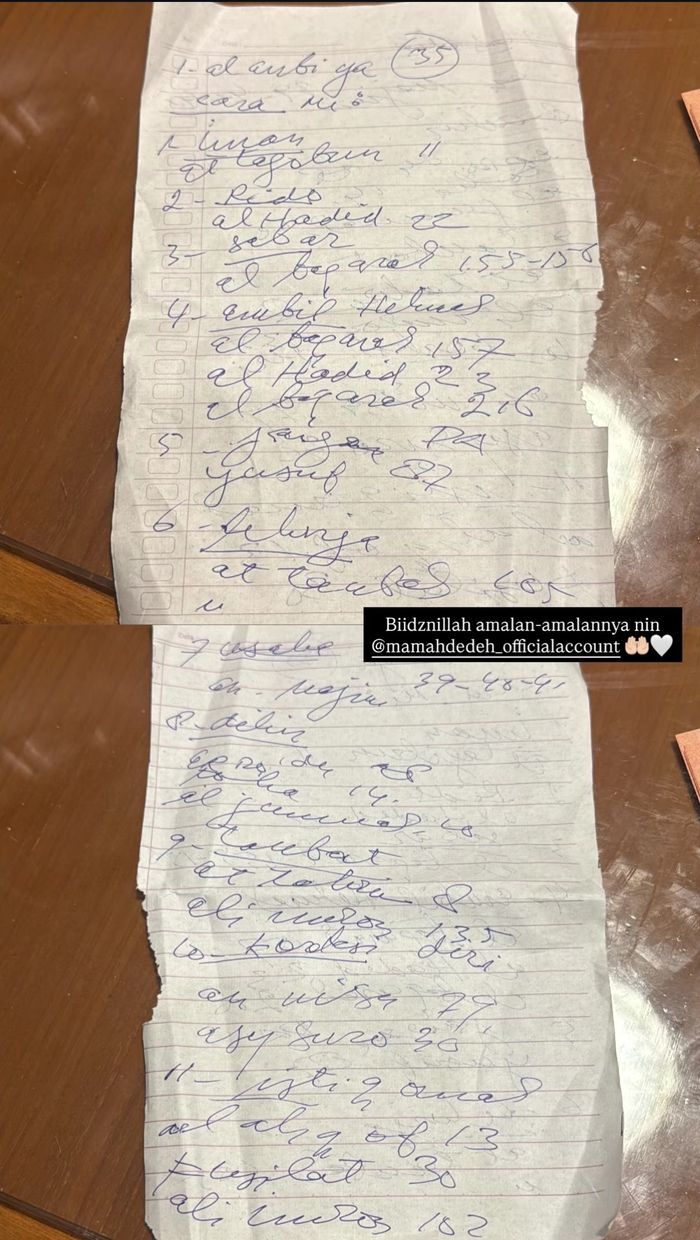 1- al anbiya 35
cara ni:
1- iman
at tagobun 11
2- Rido
al Hadid 22
3- sabar
al baqarah 155-156
4- ambil Hikmah
al baqarah 157
al Hadid 23
al baqarah 216
5- jangan PA
yusuf 87
6-
at taubah 105
Biidznillah amalan-amalannya nin
@mamahdedeh_officialaccount 🤲🏻🤍
7 usaha
an. Najm 39-40-41
8- dikir
14.
al jumuah. 10
9- Taubat
at Tahrim 8
ali imron 135
10- koreksi diri
an nisa 79,
asy suro 30
11- istiqomah
al ahqof 13
Fusilat 30
ali imron 102